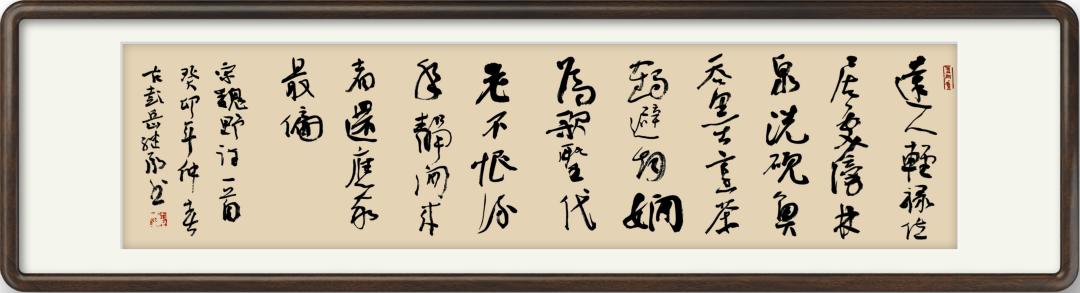 達人輕祿位
居處傍林
泉洗硯魚
吞墨烹茶
鶴避烟嫻
為歌聖代
老不恨流
年靜閒來
者還應我
最偏
宋魏野詩一首
癸卯年仲春
古彭岳继书